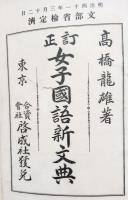 明治四十一年三月十二日
文部省檢定濟
高橋龍雄著
訂正
女子國語新文典
東京
合資會社 啓成社發兌